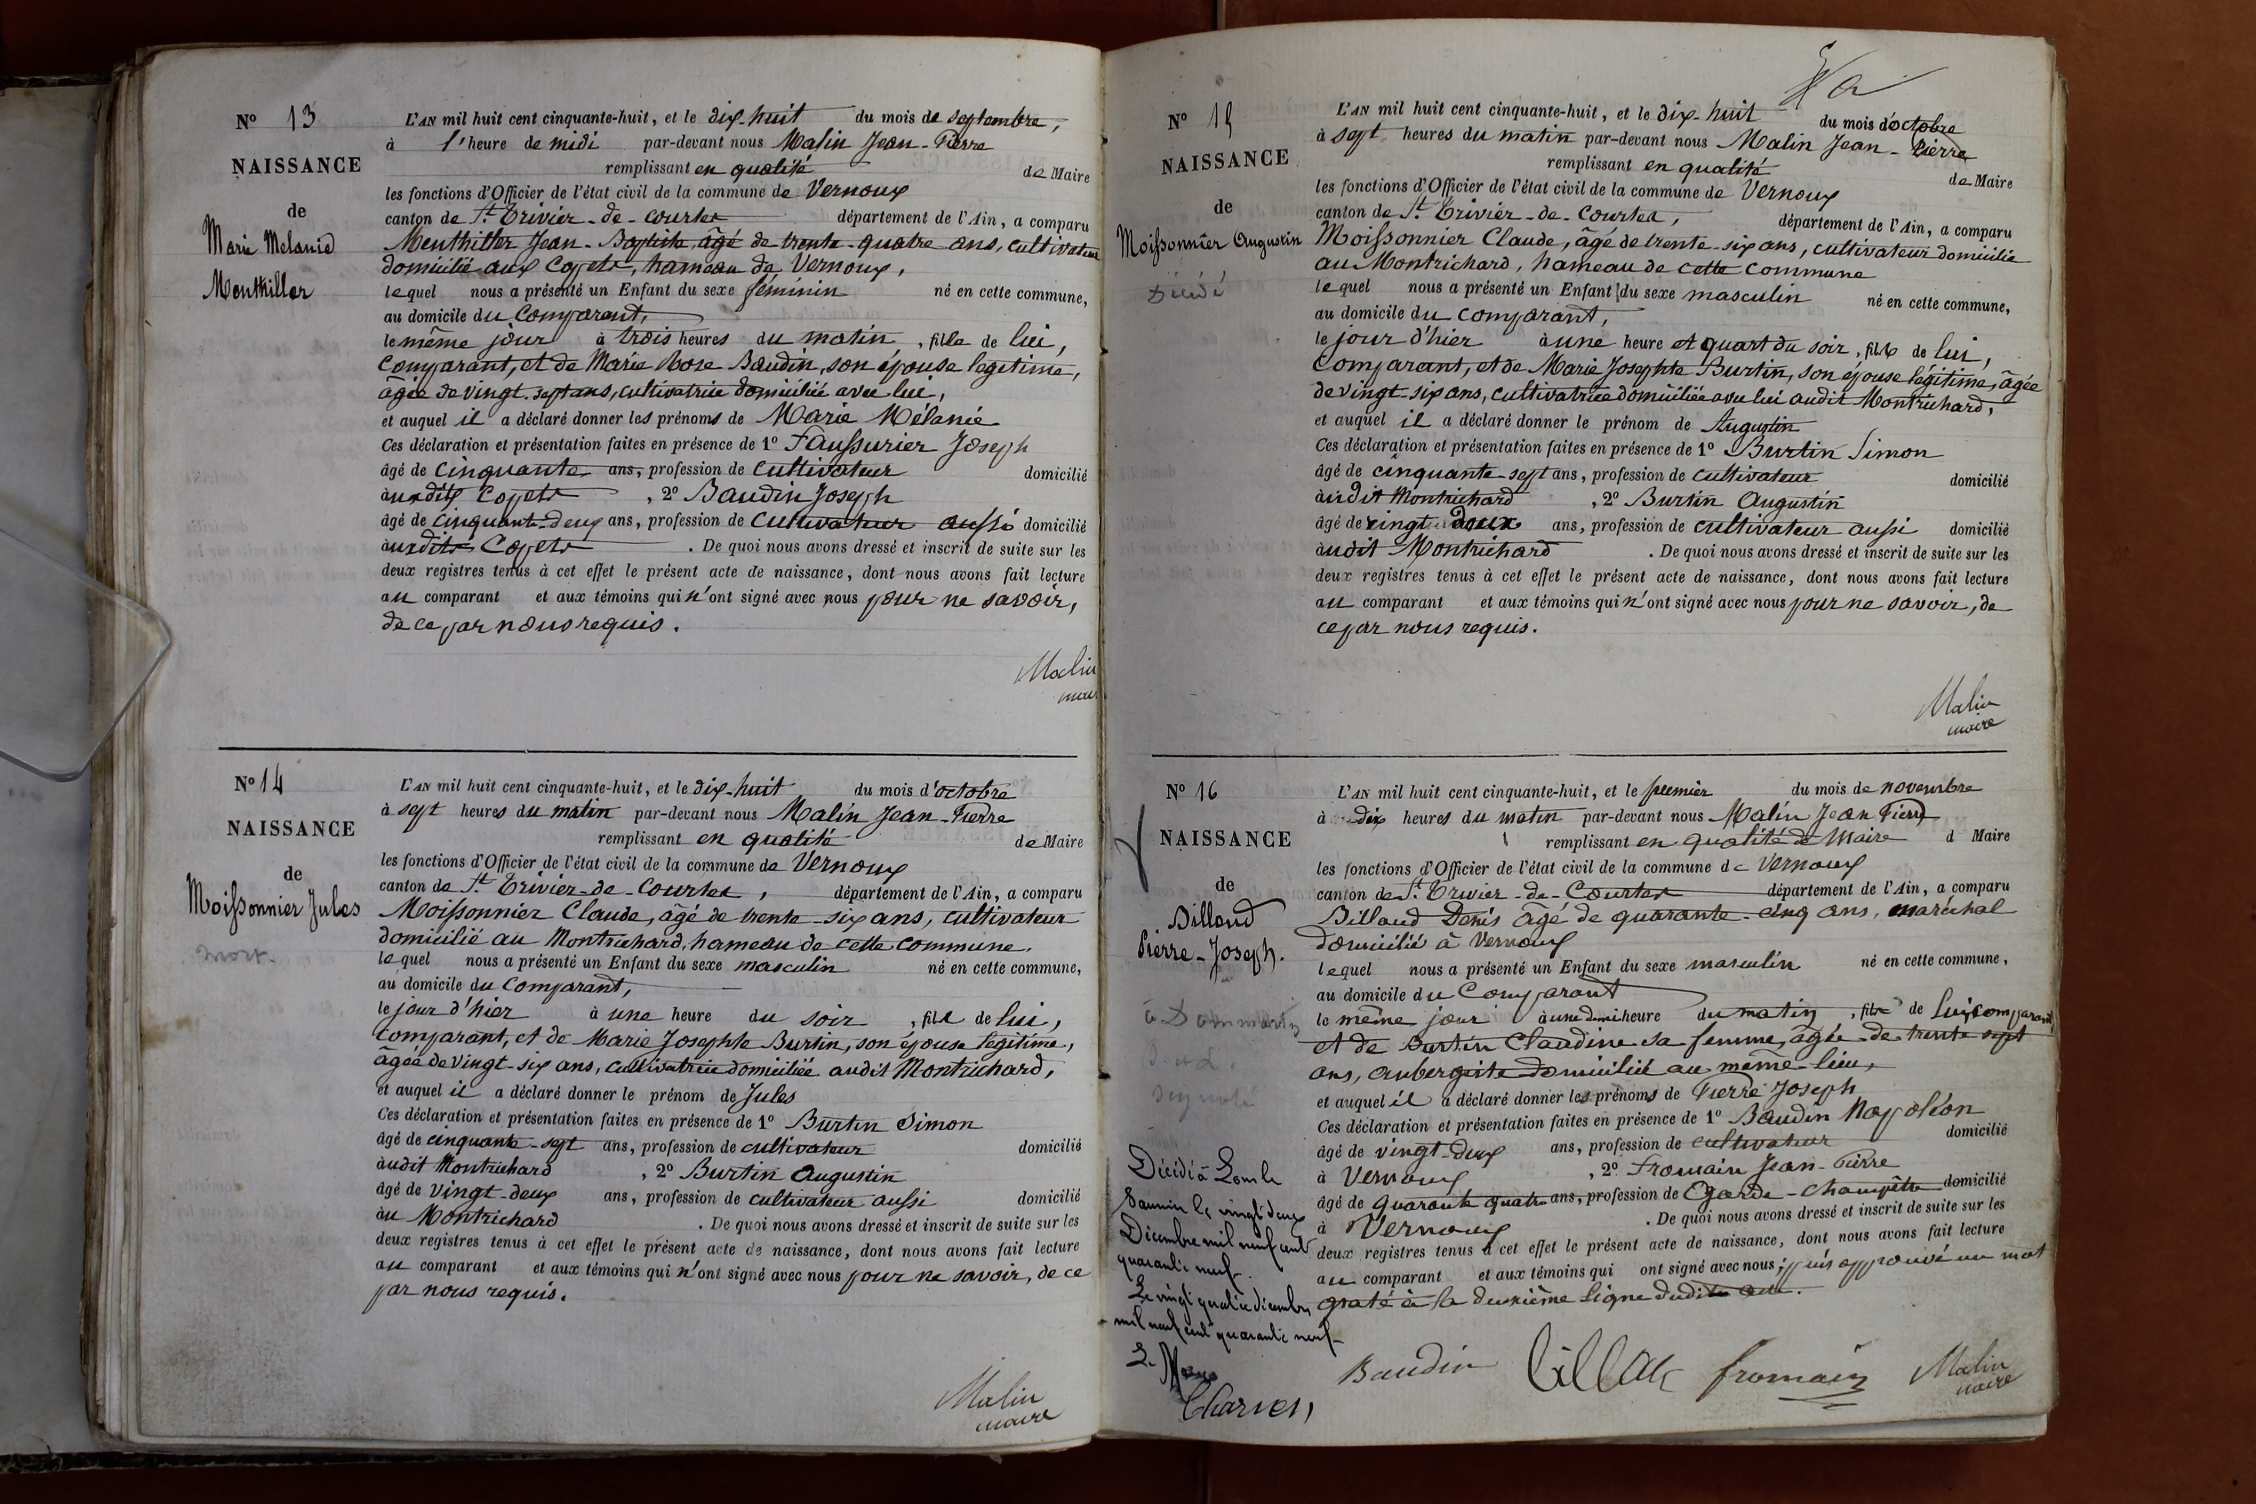 N° 13
NAISSANCE
de
Marie Melanie
Menthiller
L'AN mil huit cent cinquante-huit, et le dix-huit du mois de septembre,
à l'heure de midi par-devant nous Malin Jean-Pierre
remplissant en qualité de Maire
les fonctions d'Officier de l'état civil de la commune de Vernoux
canton de St. Trivier-de-Courtes département de l'Ain, a comparu
Menthiller Jean-Baptiste, âgé de trente-quatre ans, cultivateur
domicilié aux Copets, hameau de Vernoux,
lequel nous a présenté un Enfant du sexe féminin né en cette commune,
au domicile du Comparant,
le même jour à trois heures du matin, fille de lui,
comparant, et de Marie Rose Baudin, son épouse légitime,
âgée de vingt-sept ans, cultivatrice domiciliée avec lui,
et auquel il a déclaré donner les prénoms de Marie Mélanie
Ces déclaration et présentation faites en présence de 1° Faussurier Joseph
âgé de cinquante ans, profession de cultivateur domicilié
auxdits Copets, 2° Baudin Joseph
âgé de cinquant-deux ans, profession de cultivateur aussi domicilié
auxdits Copets. De quoi nous avons dressé et inscrit de suite sur les
deux registres tenus à cet effet le présent acte de naissance, dont nous avons fait lecture
au comparant et aux témoins qui n'ont signé avec nous pour ne savoir,
de ce par nous requis.
Malin
maire
N° 14
NAISSANCE
de
Moissonnier Jules
mort.
L'AN mil huit cent cinquante-huit, et le dix-huit du mois d'octobre
à sept heures du matin par-devant nous Malin Jean-Pierre
remplissant en qualité de Maire
les fonctions d'Officier de l'état civil de la commune de Vernoux
canton de St. Trivier-de-Courtes, département de l'Ain, a comparu
Moissonnier Claude, âgé de trente-six ans, cultivateur
domicilié au Montrichard, hameau de cette commune.
lequel nous a présenté un Enfant du sexe masculin né en cette commune,
au domicile du Comparant,
le jour d'hier à une heure du soir, fils de lui,
comparant, et de Marie Josephte Burtin, son épouse légitime,
âgée de vingt-six ans, cultivatrice domiciliée audit Montrichard,
et auquel il a déclaré donner le prénom de Jules
Ces déclaration et présentation faites en présence de 1° Burtin Simon
âgé de cinquante-sept ans, profession de cultivateur domicilié
audit Montrichard, 2° Burtin Augustin
âgé de vingt-deux ans, profession de cultivateur aussi domicilié
au Montrichard. De quoi nous avons dressé et inscrit de suite sur les
deux registres tenus à cet effet le présent acte de naissance, dont nous avons fait lecture
au comparant et aux témoins qui n'ont signé avec nous pour ne savoir, de ce
par nous requis.
Malin
maire
N° 15
NAISSANCE
de
Moissonnier Augustin
Décédé
L'AN mil huit cent cinquante-huit, et le dix-huit du mois d'octobre
à sept heures du matin par-devant nous Malin Jean-Pierre
remplissant en qualité de Maire
les fonctions d'Officier de l'état civil de la commune de Vernoux
canton de St. Trivier-de-Courtes, département de l'Ain, a comparu
Moissonnier Claude, âgé de trente-six ans, cultivateur domicilié
au Montrichard, hameau de cette commune
lequel nous a présenté un Enfant du sexe masculin né en cette commune,
au domicile du comparant,
le jour d'hier à une heure et quart du soir, fils de lui,
comparant, et de Marie Josephte Burtin, son épouse légitime, âgée
de vingt-six ans, cultivatrice domiciliée avec lui audit Montrichard,
et auquel il a déclaré donner le prénom de Augustin
Ces déclaration et présentation faites en présence de 1° Burtin Simon
âgé de cinquante-sept ans, profession de cultivateur domicilié
audit Montrichard, 2° Burtin Augustin
âgé de vingt-deux ans, profession de cultivateur aussi domicilié
audit Montrichard. De quoi nous avons dressé et inscrit de suite sur les
deux registres tenus à cet effet le présent acte de naissance, dont nous avons fait lecture
au comparant et aux témoins qui n'ont signé avec nous pour ne savoir, de
ce par nous requis.
Malin
maire
N° 16
NAISSANCE
de
Billoud
Pierre-Joseph.
à Dommartin
Décédé à
le vingt deux
Décembre mil neuf cent
quarante neuf.
Le vingt quatre décembre
mil neuf cent quarante neuf
L'AN mil huit cent cinquante-huit, et le premier du mois de novembre
à dix heures du matin par-devant nous Malin Jean Pierre
remplissant en qualité de Maire d Maire
les fonctions d'Officier de l'état civil de la commune de Vernoux
canton de St. Trivier-de-Courtes département de l'Ain, a comparu
Billoud Denis âgé de quarante-cinq ans, maréchal
domicilié à Vernoux
lequel nous a présenté un Enfant du sexe masculin né en cette commune,
au domicile du Comparant
le même jour à une demi heure du matin, fils de lui comparant
et de Burtin Claudine sa femme, âgée de trente sept
ans, aubergiste domicilié au même lieu,
et auquel il a déclaré donner les prénoms de Pierre Joseph
Ces déclaration et présentation faites en présence de 1° Baudin Napoléon
âgé de vingt-deux ans, profession de cultivateur domicilié
à Vernoux, 2° Fromain Jean-Pierre
âgé de quarante quatre ans, profession de Garde-champêtre domicilié
à Vernoux. De quoi nous avons dressé et inscrit de suite sur les
deux registres tenus à cet effet le présent acte de naissance, dont nous avons fait lecture
au comparant et aux témoins qui ont signé avec nous; puis approuvé un mot
graté à la deuxième ligne dudit acte.
Baudin
fromain
Malin
maire